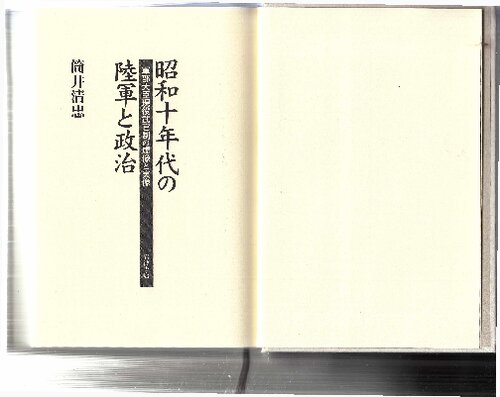 昭和十年代の
陸軍と政治
軍部大臣現役武官制の虚像と実像
筒井清忠